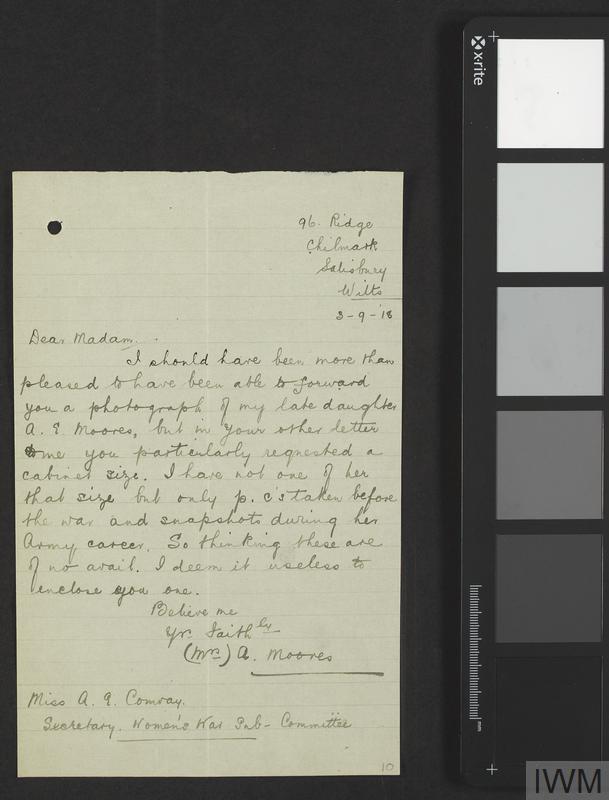 96. Ridge
Chilmark
Salisbury
Wilts
3-9-'18
Dear Madam.
I should have been more than
pleased to have been able to forward
you a photograph of my late daughter
A. E Moores, but in your other letter
to me you particularly requested a
cabinet size. I have not one of her
that size but only p. c's taken before
the war and snapshots during her
Army career. So thinking these are
of no avail. I deem it useless to
enclose you one.
Believe me
Yrs. Faithly
(Mrs) A. Moores
Miss A. E. Conway.
Secretary. Women's War Sub- Committee
10
x-rite
mm
IWM